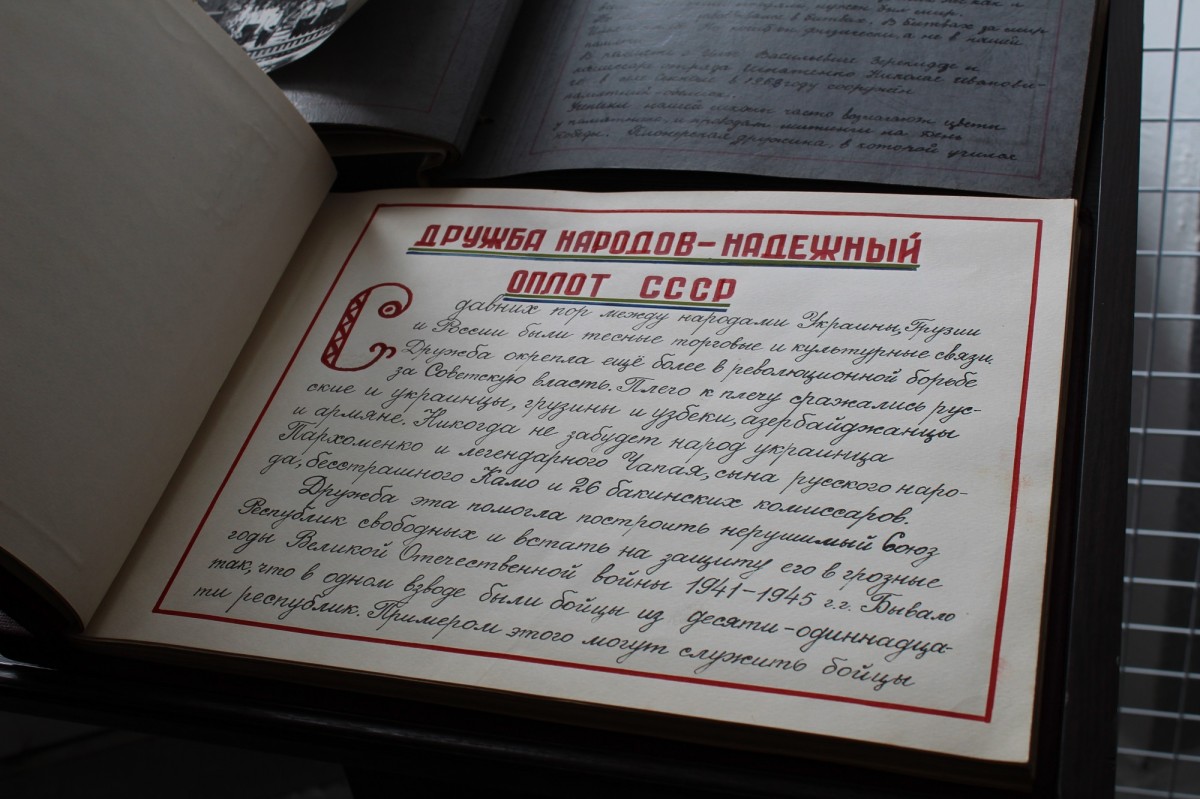 в битвах. В битвах за мир
а не в нашей
Васильевне
отряда Игнатенко Николае Иванови-
в 1968 году сооружён
Ученики нашей школы часто возлагают цветы
у памятника, и проводят митинги на день
Победы. Пионерская дружина, в которой учился
ДРУЖБА НАРОДОВ - НАДЕЖНЫЙ
ОПЛОТ СССР
С давних пор между народами Украины, Грузии
и России были тесные торговые и культурные связи.
Дружба окрепла ещё более в революционной борьбе
за Советскую власть. Плечо к плечу сражались рус-
ские и украинцы, грузины и узбеки, азербайджанцы
и армяне. Никогда не забудет народ украинца
Пархоменко и легендарного Чапая, сына русского наро-
да, бесстрашного Камо и 26 бакинских комиссаров.
Дружба эта помогла построить нерушимый Союз
Республик свободных и встать на защиту его в грозные
годы Великой Отечественной войны 1941-1945 г.г. Бывало
так, что в одном взводе были бойцы из десяти-одиннадца-
ти республик. Примером этого могут служить бойцы